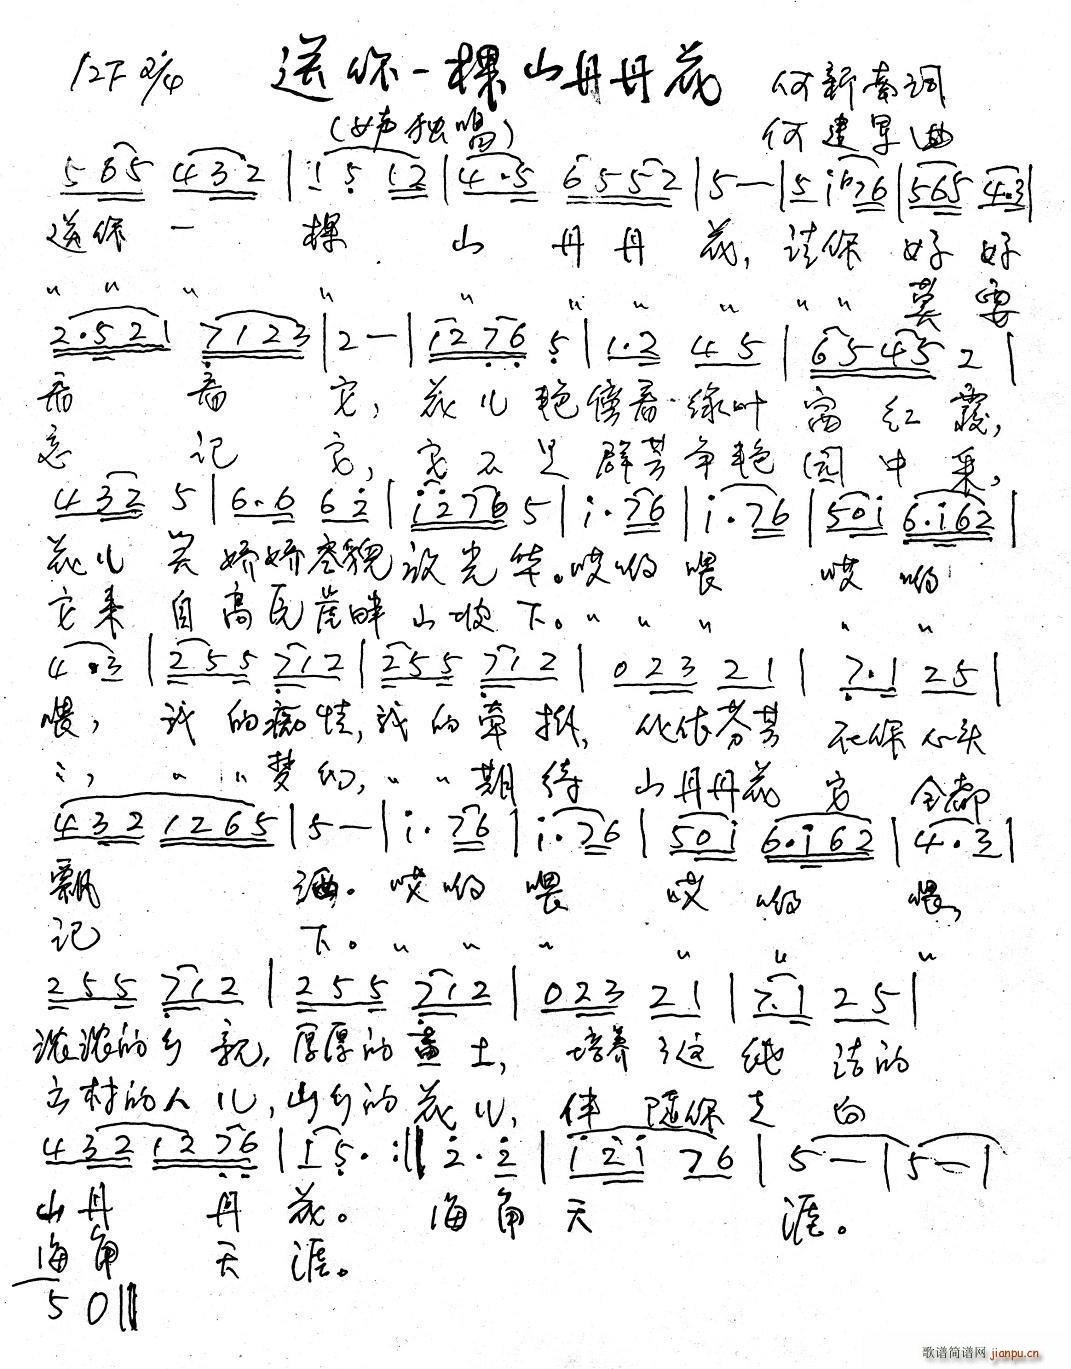 1=F 2/4 送你一棵山丹丹花 何新南词
(女声独唱) 何建军曲
5 6 5 4 3 2 | 1 5 1 2 | 4·5 6 5 5 2 | 5 — | 5 i 7 6 | 5 6 5 4·3 |
送你 一 棵 山 丹 丹 花, 请你 好 好
〃 〃 〃 〃 〃 〃 〃 〃 〃 〃 莫 要
2·5 2 1 7 1 2 3 | 2 — | 1 2 7 6 5 | 1·2 4 5 | 6 5 4 5 2 |
看 看 它, 花儿 艳 傍着 绿叶 红 霞,
忘 记 它, 它不是 群芳争艳 园 中 采,
4 3 2 5 | 6·6 6 2 | i 2 7 6 5 | i·7 6 | i·7 6 | 5 0 i 6·i 6 2 |
花儿 娇娇 容貌 放光华。哎哟 喂 哎 哟
它来 自高瓦崖畔 山坡 下。〃 〃 〃 〃 〃
4·3 | 2 5 5 7 1 2 | 2 5 5 7 1 2 | 0 2 3 2 1 | 7·1 2 5 |
喂, 我 的痴情, 我的牵挂, 依依芬芳 在你心头
〃, 〃 〃梦幻, 〃 〃期待 山丹丹花 它 全都
4 3 2 1 2 6 5 | 5 — | i·7 6 | i·7 6 | 5 0 i 6·i 6 2 | 4·3 |
飘 洒。哎哟 喂 哎 哟 喂,
记 下。〃 〃 〃 〃 〃 〃
2 5 5 7 1 2 | 2 5 5 7 1 2 | 0 2 3 2 1 | 7·1 2 5 |
浓浓的乡 亲, 厚厚的黄 土, 培养 这 纯 洁的
村的人 儿, 山乡的花儿, 伴 随你走 向
4 3 2 1 2 7 6 | 1 5 · :‖ 2·2 | i 2 i 7 6 | 5 — | 5 — |
山丹 丹 花。 海角天 涯。
海角 天 涯。
5 0 ‖
歌谱简谱网 jianpu.cn